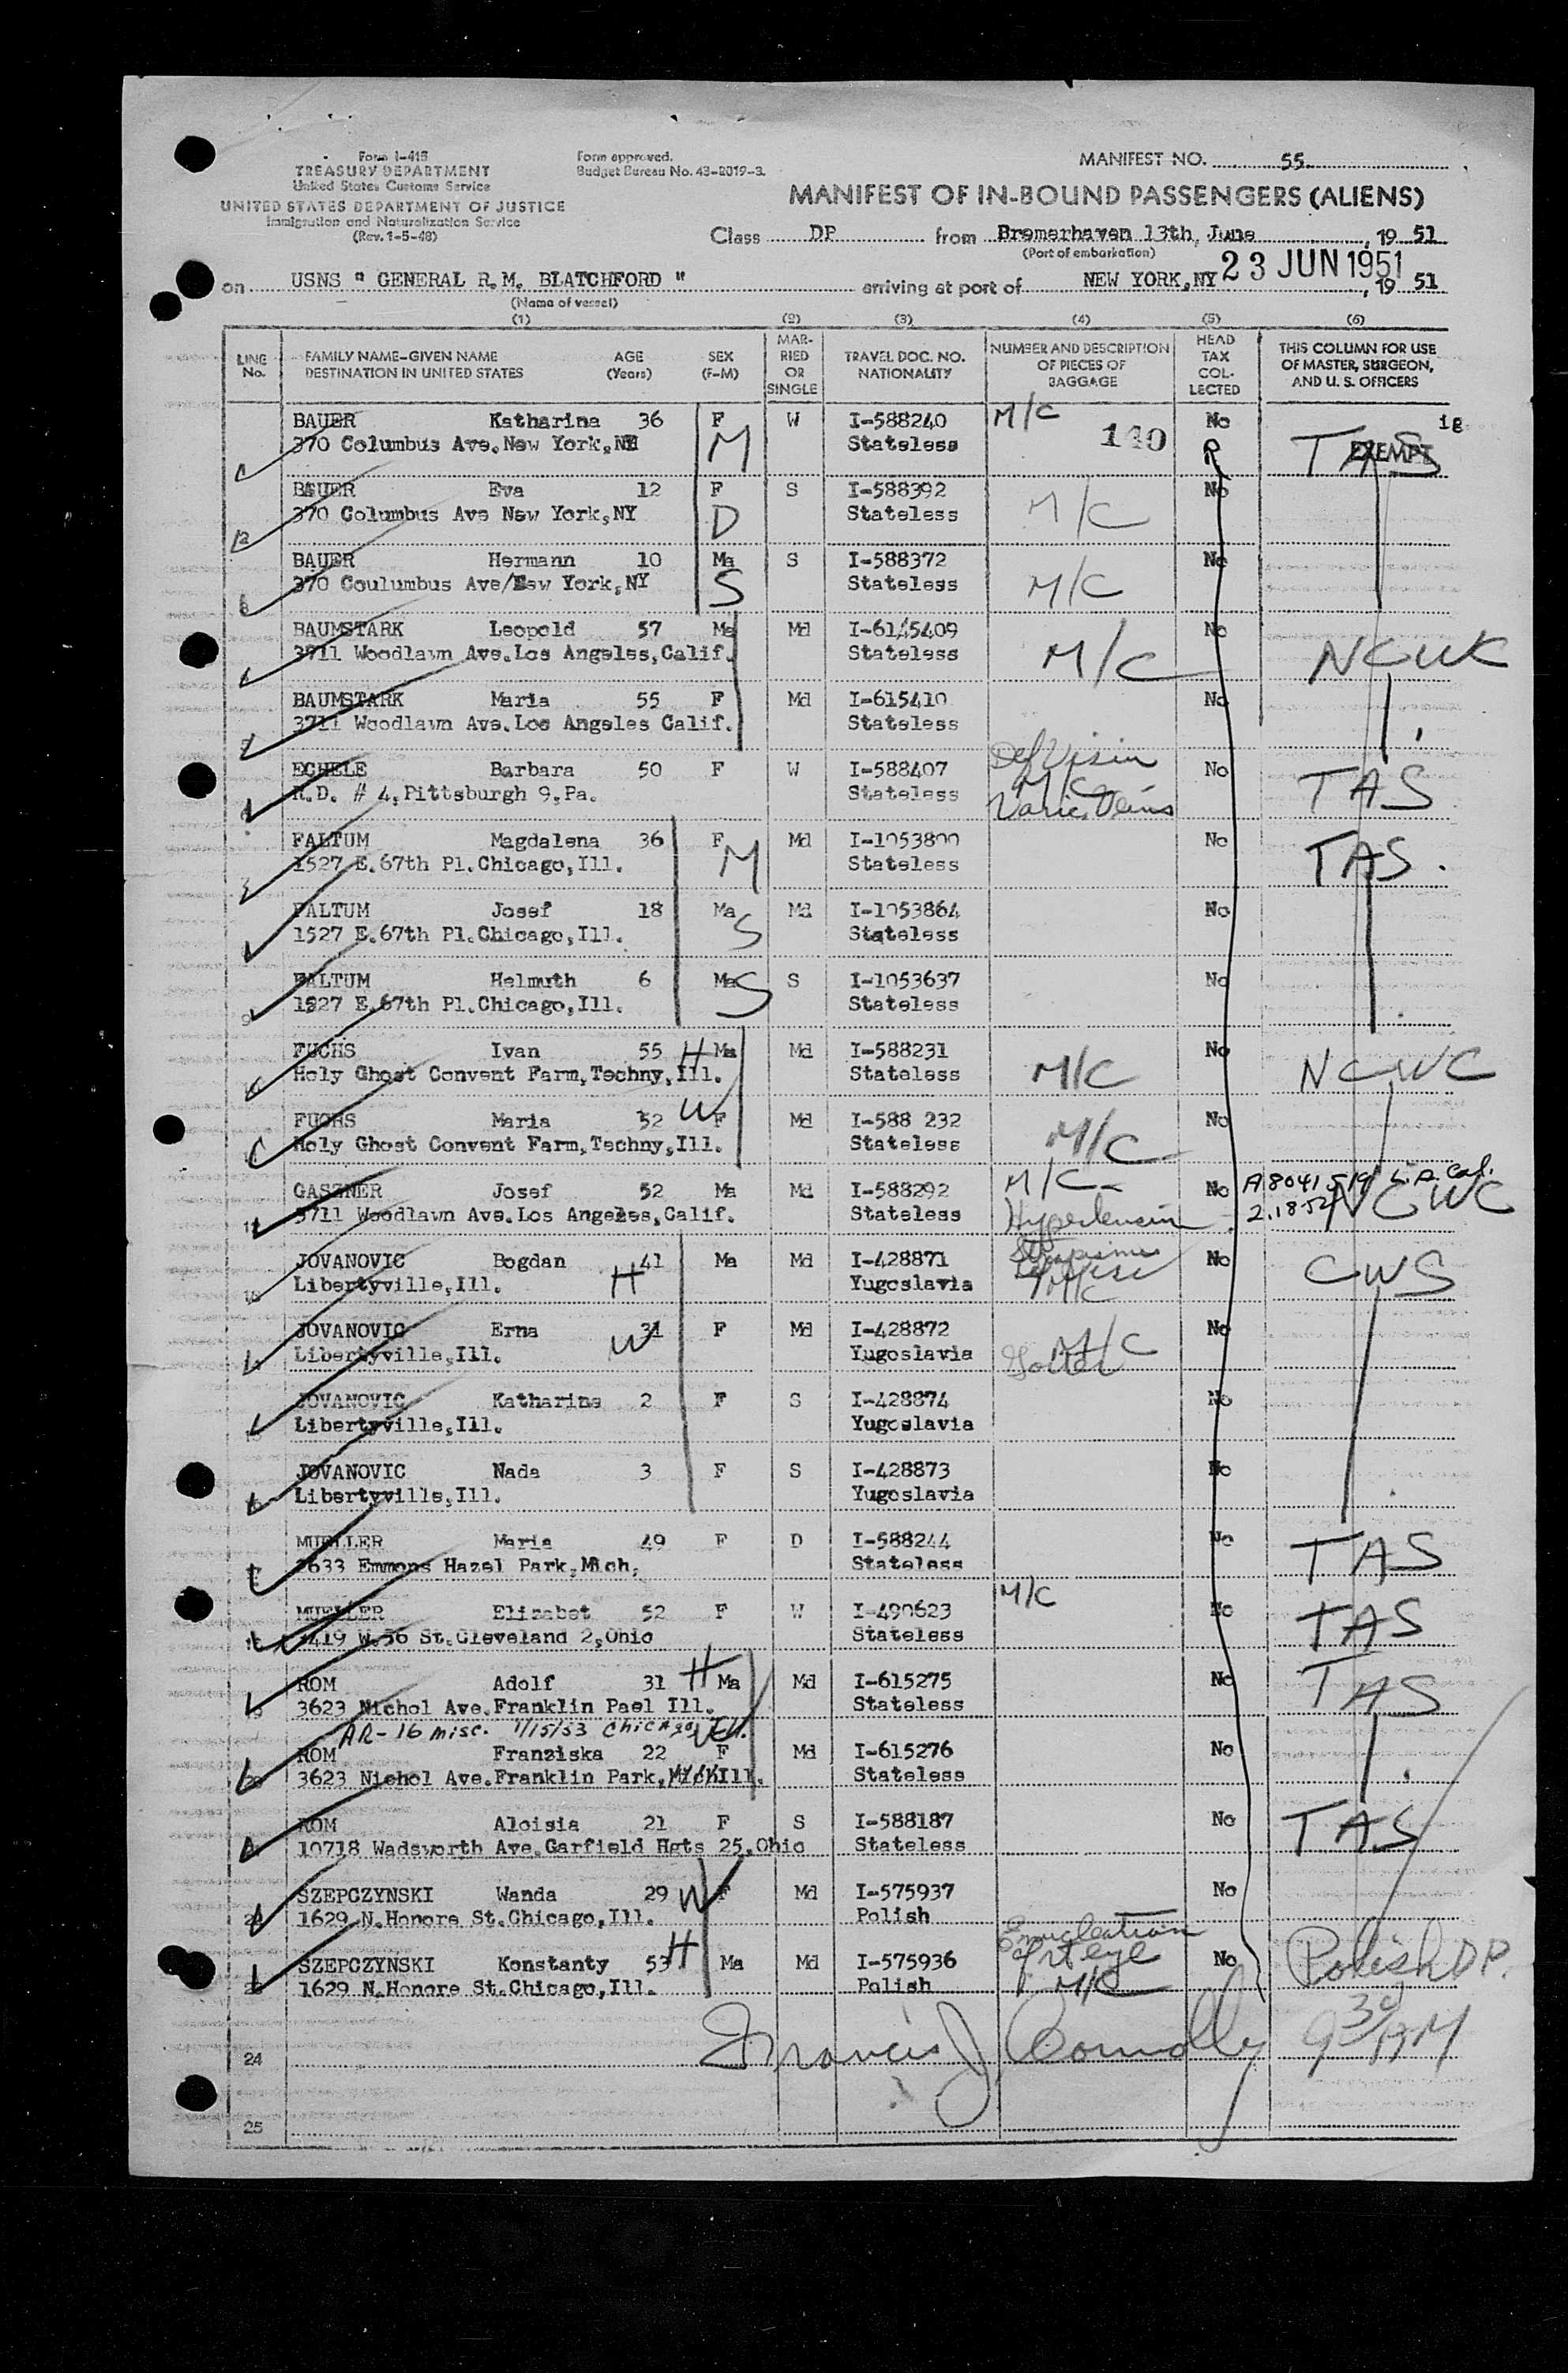 Form I-415
TREASURY DEPARTMENT
United States Customs Service
UNITED STATES DEPARTMENT OF JUSTICE
Immigration and Naturalization Service
(Rev. 1-5-48)
Form approved.
Budget Bureau No. 43-R019-3.
MANIFEST NO. 55
MANIFEST OF IN-BOUND PASSENGERS (ALIENS)
Class DP from Bremerhaven 13th, June, 19 51
(Port of embarkation)
on USNS " GENERAL R.M. BLATCHFORD " arriving at port of NEW YORK,NY 23 JUN 1951, 19 51
(Name of vessel)
(1) (2) (3) (4) (5) (6)
LINE No. FAMILY NAME—GIVEN NAME DESTINATION IN UNITED STATES AGE (Years) SEX (F-M) MARRIED OR SINGLE TRAVEL DOC. NO. NATIONALITY NUMBER AND DESCRIPTION OF PIECES OF BAGGAGE HEAD TAX COLLECTED THIS COLUMN FOR USE OF MASTER, SURGEON, AND U. S. OFFICERS
BAUER Katharina 36 F W I-588240 M/C 140 No ig
370 Columbus Ave.New York,NY M Stateless R TAS EXEMPT
BAUER Eva 12 F S I-588392 M/C No
370 Columbus Ave New York,NY D Stateless
BAUER Hermann 10 Ma S I-588372 M/C No
370 Coulumbus Ave/New York,NY S Stateless
BAUMSTARK Leopold 57 Ma Md I-61/5409 M/C No
3711 Woodlawn Ave.Los Angeles,Calif. Stateless NCWC
BAUMSTARK Maria 55 F Md I-615410 No
3711 Woodlawn Ave.Los Angeles Calif. Stateless
ECHELE Barbara 50 F W I-588407 Def Visin M/C No
R.D. # 4,Pittsburgh 9,Pa. Stateless Varic. Veins TAS
FALTUM Magdalena 36 F Md I-1053800 No
1527 E.67th Pl.Chicago,Ill. M Stateless TAS.
FALTUM Josef 18 Ma Md I-1053864 No
1527 E.67th Pl.Chicago,Ill. S Stateless
FALTUM Helmuth 6 Ma S S I-1053637 No
1527 E.67th Pl.Chicago,Ill. Stateless
FUCHS Ivan 55 H Ma Md I-588231 M/C No
Holy Ghost Convent Farm,Techny,Ill. Stateless NCWC
FUCHS Maria 52 W F Md I-588 232 M/C No
Holy Ghost Convent Farm,Techny,Ill. Stateless
GASZNER Josef 52 Ma Md I-588292 M/C No A8041519 L.A. Cal.
3711 Woodlawn Ave.Los Angeles,Calif. Stateless Hypertension 2.18.52 NCWC
JOVANOVIC Bogdan 41 Ma Md I-428871 No
Libertyville,Ill. H Yugoslavia M/C CWS
JOVANOVIC Erna 31 F Md I-428872 M/C No
Libertyville,Ill. W Yugoslavia Goiter
JOVANOVIC Katharina 2 F S I-428874 No
Libertyville,Ill. Yugoslavia
JOVANOVIC Nada 3 F S I-428873 No
Libertyville,Ill. Yugoslavia
MUELLER Maria 49 F D I-588244 No
1633 Emmons Hazel Park,Mich, Stateless TAS
MUELLER Elizabet 52 F W I-490623 M/C No
3419 W.56 St.Cleveland 2,Ohio Stateless TAS
ROM Adolf 31 H Ma Md I-615275 No
3623 Nichol Ave.Franklin Pael Ill. Stateless TAS
AR-16 misc. 1/15/53 Chicago, Ill.
ROM Franziska 22 F Md I-615276 No
3623 Nichol Ave.Franklin Park,Mich Ill. Stateless
ROM Aloisia 21 F S I-588187 No
10718 Wadsworth Ave.Garfield Hgts 25,Ohio Stateless TAS
SZEPCZYNSKI Wanda 29 W F Md I-575937 No
1629 N.Honore St.Chicago,Ill. Polish
SZEPCZYNSKI Konstanty 53 H Ma Md I-575936 Enucleation of rt eye No
1629 N.Honore St.Chicago,Ill. Polish M/C Polish DP.
24 Francis J. Connolly 9 30 AM
25